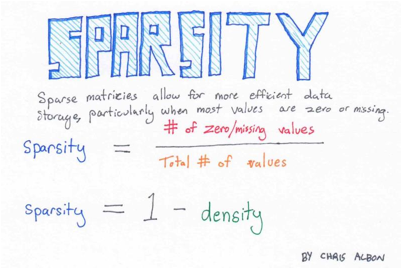 SPARSITY
Sparse matricies allow for more efficient data
storage, particularly when most values are zero or missing.
# of zero/missing values
Sparsity =
Total # of values
Sparsity = 1 - density
BY CHRIS ALBON